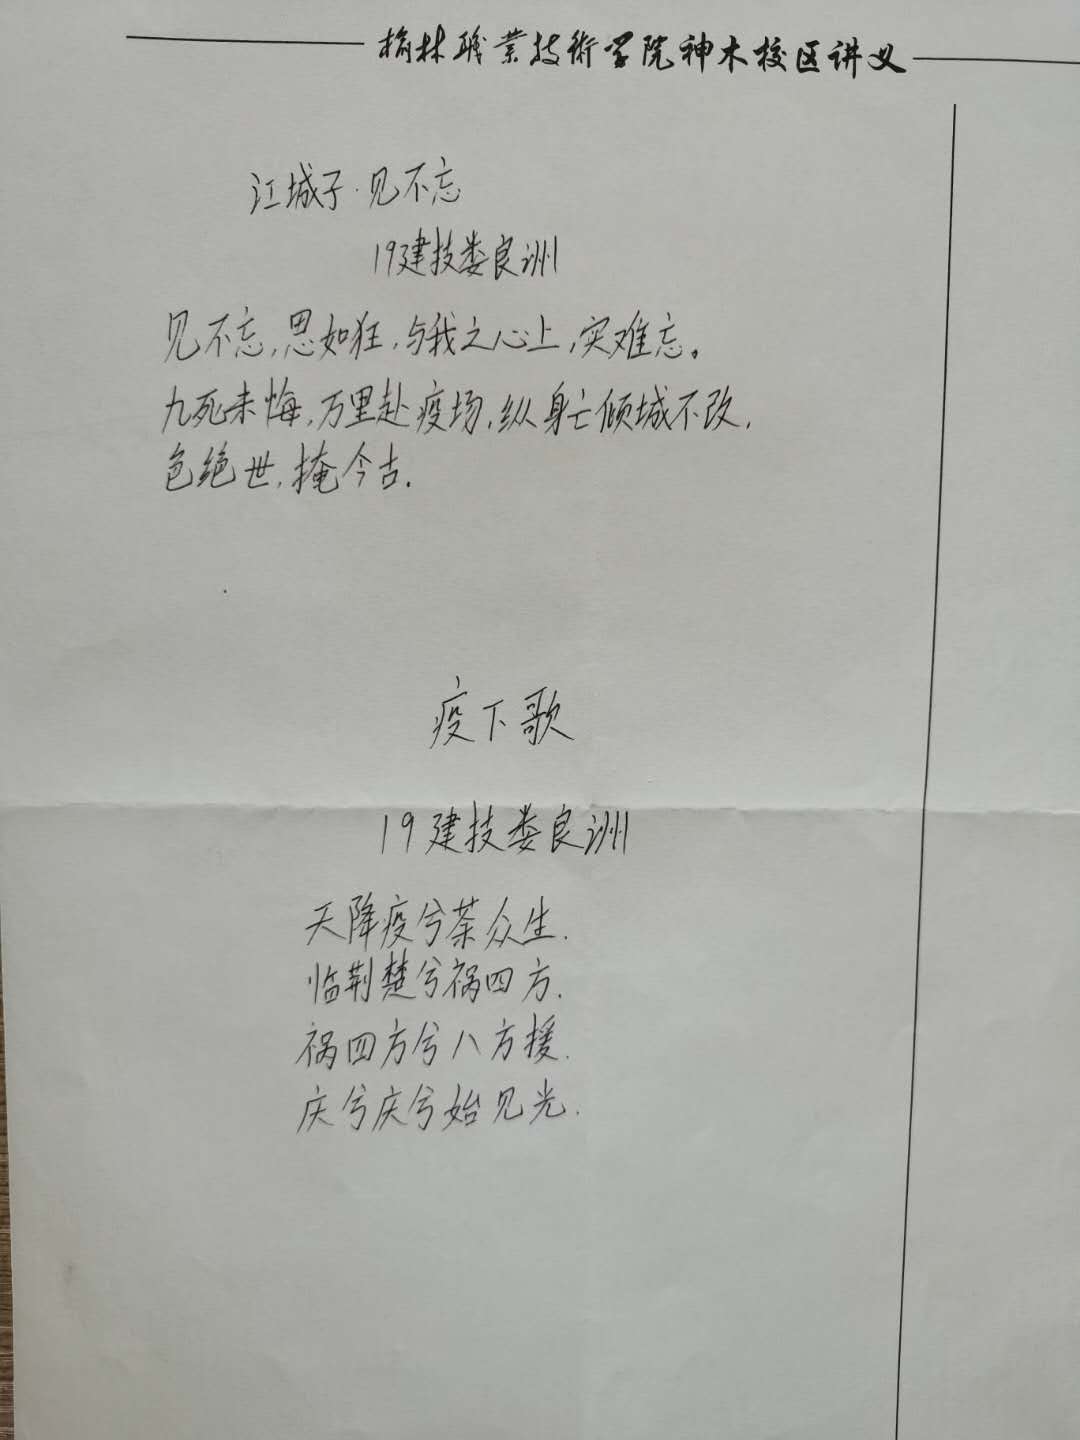 榆林职業技術学院神木校区讲义
江城子·见不忘
19建技娄良洲
见不忘,思如狂,与我之心上,实难忘。
九死未悔,万里赴疫场,纵身亡倾城不改,
色绝世,掩今古.
疫下歌
19建技娄良洲
天降疫兮荼众生.
临荆楚兮祸四方.
祸四方兮八方援.
庆兮庆兮始见光.